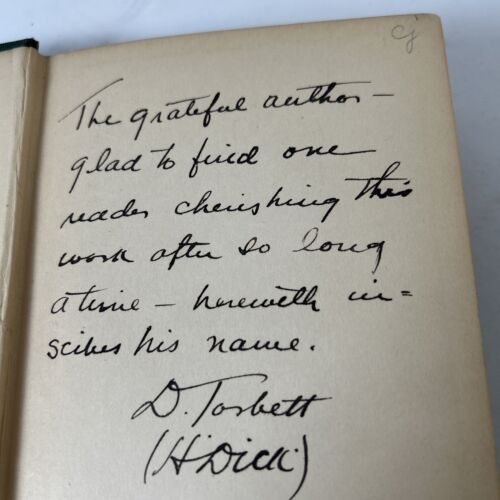 The grateful author —
glad to find one
reader cherishing this
work after so long
a time — herewith in=
scribes his name.
D. Torbett
("Dick")